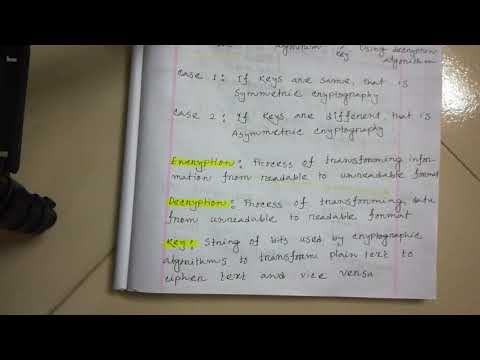 algorithm key using decryption
algorithm
Case 1: If keys are same, that is
Symmetric cryptography
Case 2: If keys are different, that is
Asymmetric cryptography
Encryption: Process of transforming infor-
mation from readable to unreadable format
Decryption: Process of transforming data
from unreadable to readable format
Key: String of bits used by cryptographic
algorithms to transform plain text to
cipher text and vice versa